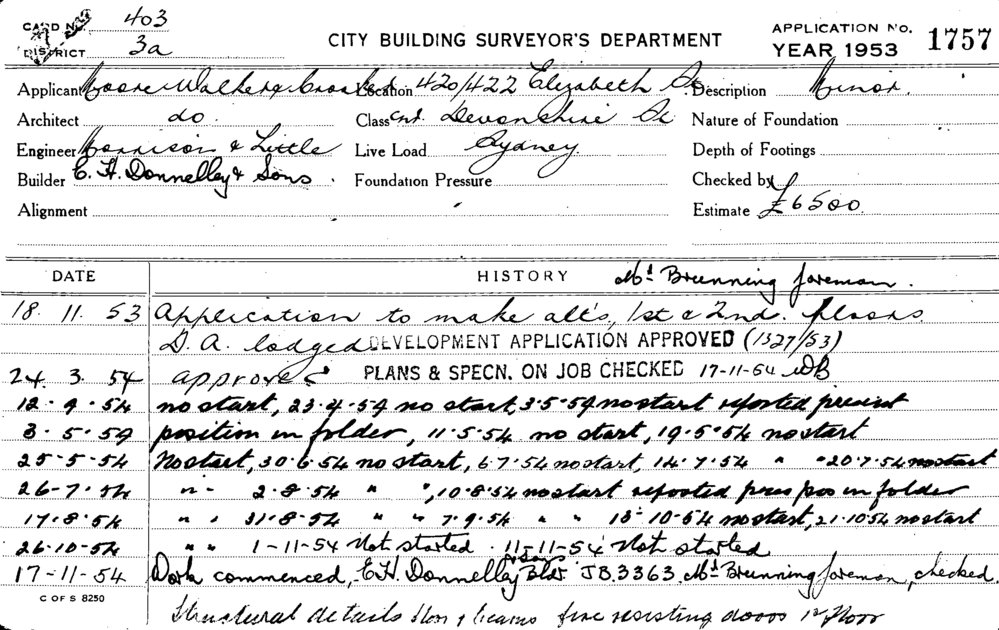 CARD No. 403
DISTRICT 3a
CITY BUILDING SURVEYOR'S DEPARTMENT
APPLICATION No. 1757
YEAR 1953
Applicant Moore Walker & Location 420/422 Elizabeth St Description Minor.
Architect do. Class cnr. Devonshire St Nature of Foundation
Engineer Morrison & Little Live Load Sydney Depth of Footings
Builder E. H. Donnelley & Sons. Foundation Pressure Checked by
Alignment Estimate £6500.
DATE HISTORY Mr Brunning foreman.
18. 11. 53 Application to make alt's, 1st & 2nd. floors
D.A. lodged DEVELOPMENT APPLICATION APPROVED (1327/53)
24. 3. 54 approved PLANS & SPECN. ON JOB CHECKED 17-11-54 WB
no start, 23.4.54 no start, 3.5.54 no start reported present
3.5.54 position in folder, 11.5.54 no start, 19.5.54 no start
25.5.54 No start, 30.6.54 no start, 6.7.54 no start, 14.7.54 " " 20.7.54 no start
26-7.54 " " 2.8.54 " ", 10.8.54 no start reported pres pos in folder
17.8.54 " " 31.8.54 " " 7.9.54 " " 18-10-54 no start, 21.10.54 no start
26.10.54 " " 1-11-54 Not started. 11-11-54 Not started
17-11-54 Work commenced, E.H. Donnelley & Sons Bldr JB.3363. Mr Brunning foreman, checked.
C OF S 8250
Structural details & beams fire resisting doors 1st floor